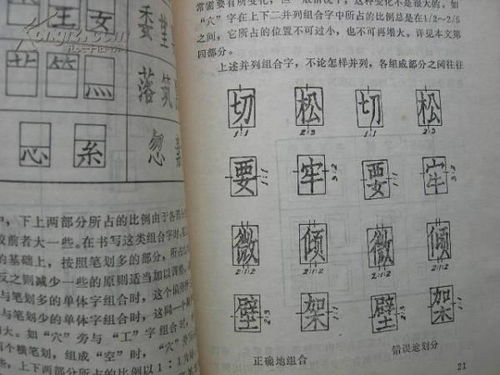 垩 女
委
落 筑
灬
芯 糸
忽
下上两部分所占的比例由于各
较前者大一些。在书写这类组合字时,
的基础上,按照笔划多的部分,所占
反之则减少一些的原则适当加以调整
与笔划多的单体字组合时,这个偏
与笔划少的单体字组合时,这同一个
大。如“穴”旁与“工”字组合时,
个横笔划,组成“空”时,“穴”
,上下两部分所占的比例以1:1
常需要有所变化,但一般情况下,这种变化不是很大的。如
“穴”字在上下二并列组合字中所占的比例总是在1/2~2/5
之间,它所占的位置不可过小,也不可再增大。详见本文第
四部分。
上述并列组合字,不论怎样并列,各组成部分之间往往
切 松 切 松
1:1 2:3 1:1 2:3
要 牢 要 牢
微 倾 微 倾
2:1:2 2:1:2 2:1:2 2:1:2
壁 架 壁 架
正确地组合 错误地划分
21